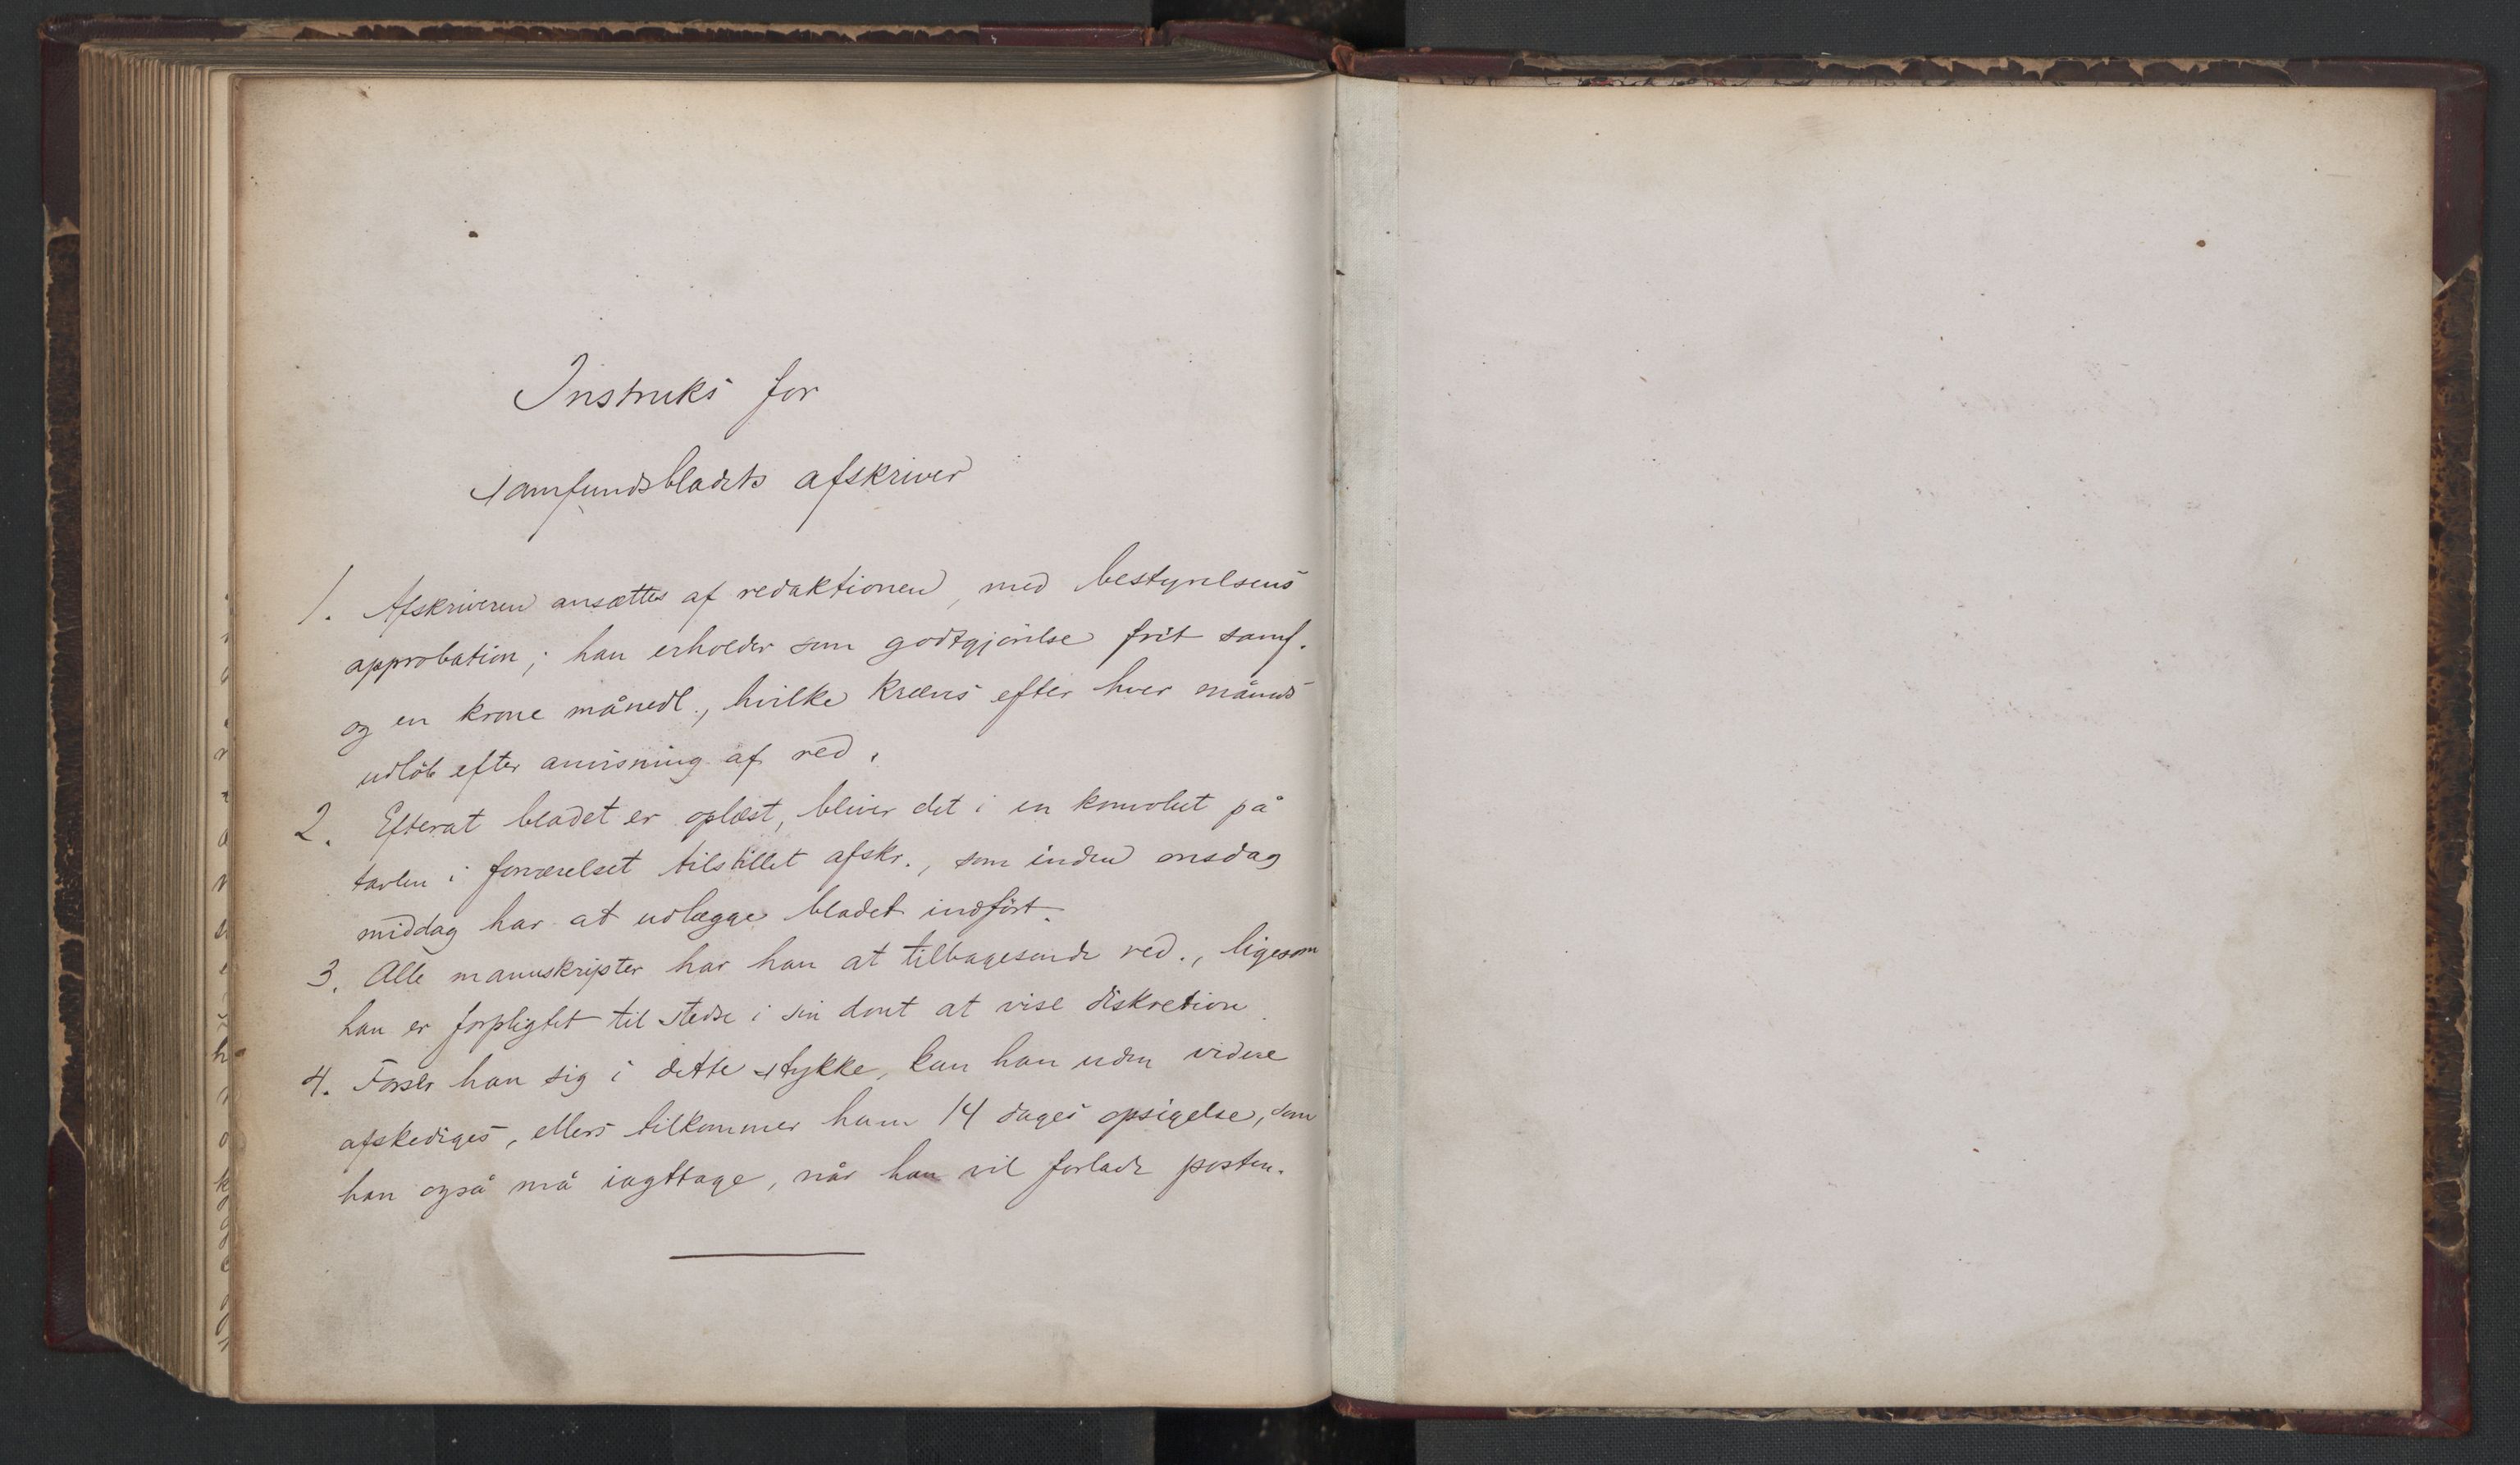 Instruks for
Samfundsbladets afskriver
1. Afskriveren ansættes af redaktionen, med bestyrelsens
approbation; han erholder som godtgjörelse frit samf.
og en krone månedl., hvilke kræves efter hver måneds
udløb efter anvisning af red.
2. Efterat bladet er oplæst, bliver det i en konvolut på
tavlen i forværelset tilstillet afskr., som inden onsdag
middag har at udlægge bladet indført.
3. Alle manuskripter har han at tilbagesende red., ligesom
han er forpligtet til stedse i sin dont at vise diskretion.
4. Forser han sig i dette stykke, kan han uden videre
afskediges, ellers tilkommer ham 14 dages opsigelse, som
han også må iagttage, når han vil forlade posten.